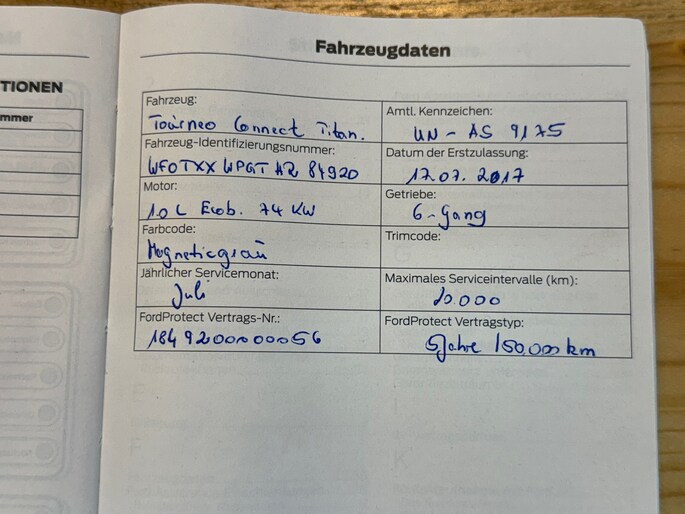 TIONEN
mmer
Fahrzeugdaten
Fahrzeug:
Tourneo Connect Titan.
Amtl. Kennzeichen:
UN - AS 9175
Fahrzeug-Identifizierungsnummer:
WF0TXX WPGT HR 84920
Datum der Erstzulassung:
17.07.2017
Motor:
1.0 L Ecob. 74 KW
Getriebe:
6-Gang
Farbcode:
Magneticgrau
Trimcode:
Jährlicher Servicemonat:
Juli
Maximales Serviceintervalle (km):
FordProtect Vertrags-Nr.:
FordProtect Vertragstyp:
5 Jahre 150.000 km